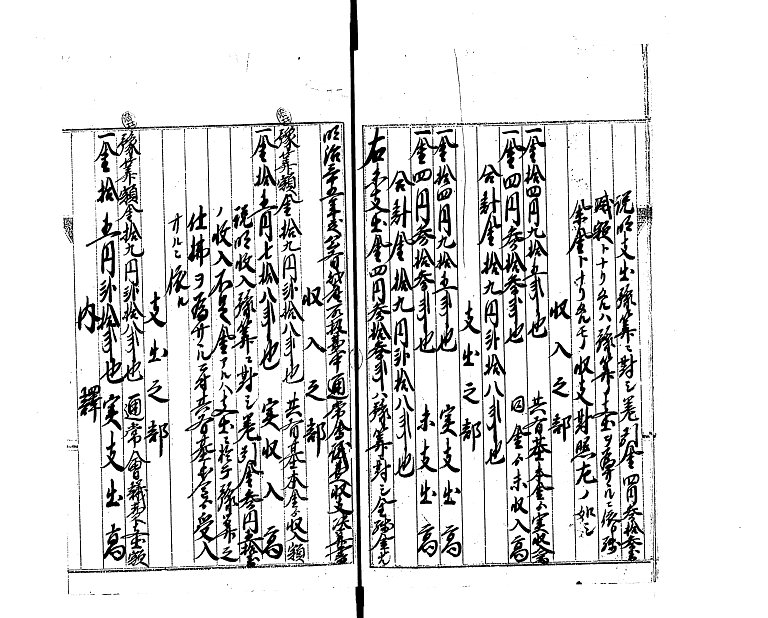 説明支出豫算ニ對シ差引金四円参拾参
減額トナリタルハ豫算ノ支出ヲ為サヽルニ依リ残
余金トナリタルモノ収支対照左ノ如シ
収入之部
一金拾四円九拾五銭也 共有基本金ヨリ実収高
一金四円参拾参銭也 同金ヨリ未収入高
合計金拾九円弐拾八銭也
支出之部
一金拾四円九拾五銭也 実支出高
一金四円参拾参銭也 未支出高
合計金拾九円弐拾八銭也
右未支出金四円参拾参銭ハ豫算ニ対シ全残金
明治三十五年度 通常会議費収支決算書
収入之部
豫算額金拾九円弐拾八銭也 共有基本金ヨリ収入額
一金拾五円七拾八銭也 実収入高
説明収入豫算ニ對シ差引金参円
ノ収入不足金アルハ支出ニ於テ豫算之
仕拂ヲ為サヽルニ付共有基本金ヨリ受入
サルニ依ル
支出之部
豫算額金拾九円弐拾八銭也 通常會議費支出額
一金拾五円弐拾銭也 実支出高
内譯